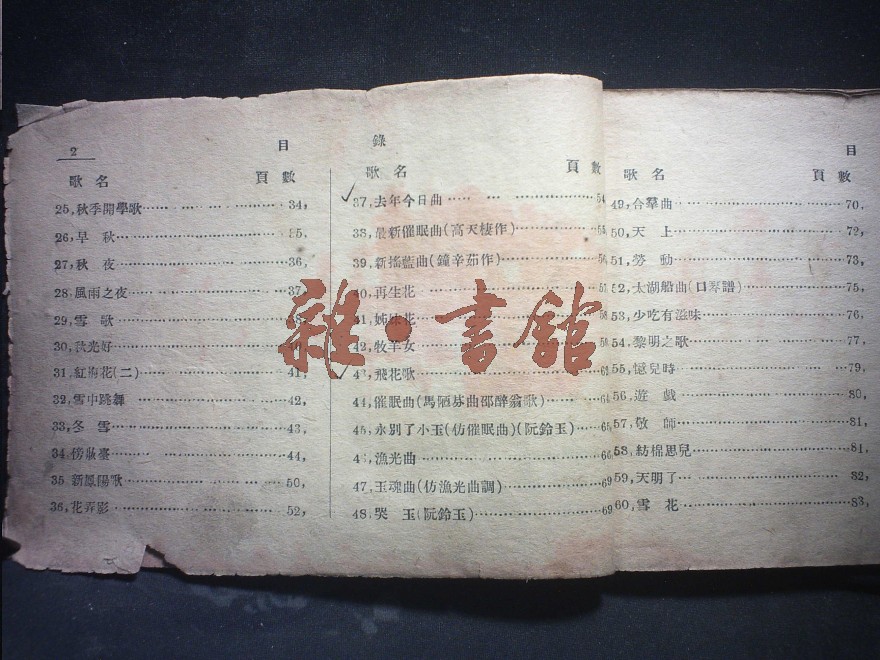 2 目 錄
歌名 頁數
25,秋季開學歌 34,
26,早 秋 35,
27,秋 夜 36,
28,風雨之夜 37
29,雪 歌
30,秋光好
31,紅梅花(二) 41,
32,雪中跳舞 42,
33,冬 雪 43,
34,傍妝臺 44,
35,新鳳陽歌 50,
36,花弄影 52,
歌名 頁數
37,去年今日曲 54
38,最新催眠曲(高天棲作) 55
39,新搖藍曲(鐘辛茹作) 56
40,再生花 57
41,姊妹花 58
42,牧羊女 59
43,飛花歌
44,催眠曲(馬陋芬曲邵醉翁歌) 64
45,永別了小玉(仿催眠曲)(阮鈴玉) 65
46,漁光曲 66
47,玉魂曲(仿漁光曲調) 69
48,哭 玉(阮鈴玉) 69
目
歌名 頁數
49,合羣曲 70,
50,天 上 72,
51,勞 動 73,
52,太湖船曲(口琴譜) 75,
53,少吃有滋味 76,
54,黎明之歌 77,
55,憶兒時 79,
56,遊 戲 80,
57,敬 師 81,
58,紡棉思兒 81,
59,天明了 82,
60,雪 花 83,
雜·書舘